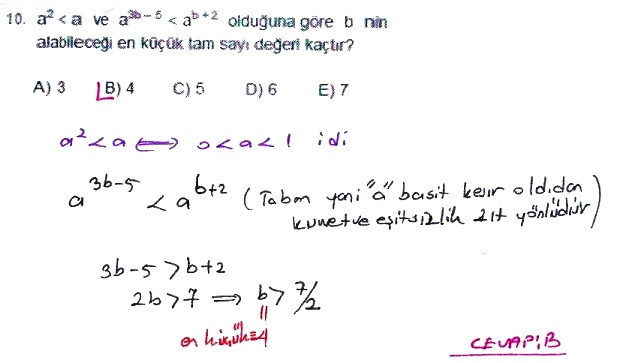 10. a² < a ve a³ᵇ⁻⁵ < aᵇ⁺² olduğuna göre b nin
alabileceği en küçük tam sayı değeri kaçtır?
A) 3 B) 4 C) 5 D) 6 E) 7
a² < a ⟺ 0 < a < 1 idi
a³ᵇ⁻⁵ < aᵇ⁺² (Taban yani "a" basit kesir old.dan
kuvvet ve eşitsizlik zıt yönlüdür)
3b-5 > b+2
2b > 7 ⟹ b > 7/2
en küçük = 4
CEVAP: B